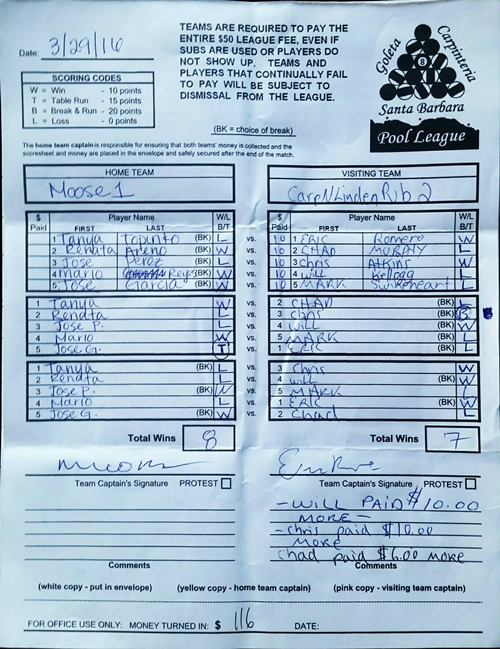 Date: 3/29/16
TEAMS ARE REQUIRED TO PAY THE
ENTIRE $50 LEAGUE FEE, EVEN IF
SUBS ARE USED OR PLAYERS DO
NOT SHOW UP. TEAMS AND
PLAYERS THAT CONTINUALLY FAIL
TO PAY WILL BE SUBJECT TO
DISMISSAL FROM THE LEAGUE.
(BK = choice of break)
Goleta Carpinteria
8
Santa Barbara
Pool League
SCORING CODES
W = Win - 10 points
T = Table Run - 15 points
B = Break & Run - 20 points
L = Loss - 0 points
The home team captain is responsible for ensuring that both teams' money is collected and the
scoresheet and money are placed in the envelope and safely secured after the end of the match.
HOME TEAM
Moose 1
VISITING TEAM
Carp N/Linden Pub 2
$ Paid Player Name FIRST LAST W/L B/T
$ Paid Player Name FIRST LAST W/L B/T
1 Tanya (BK) L vs. 10 1 ERIC Romero W
2 Renata (BK) W vs. 10 2 CHAD MURPHY L
3 Jose Perez (BK) L vs. 10 3 Chris Atkins W
4 Mario Reys (BK) W vs. 10 4 Will Kellogg L
5 Jose Garcia (BK) W vs. 10 5 MARK Swinkeheart L
1 Tanya W vs. 2 CHAD (BK) L
2 Renata L vs. 3 Chris (BK) B
3 Jose P. L vs. 4 Will (BK) W
4 Mario W vs. 5 MARK (BK) L
5 Jose G. T vs. 1 ERIC (BK) L
1 Tanya (BK) L vs. 3 Chris W
2 Renata L vs. 4 Will (BK) W
3 Jose P. (BK) W vs. 5 MARK L
4 Mario L vs. 1 ERIC (BK) W
5 Jose G. (BK) W vs. 2 Chad L
Total Wins 8
Total Wins 7
Team Captain's Signature PROTEST
Team Captain's Signature PROTEST
- WILL PAID $10.00
MORE -
- Chris paid $10.00
MORE
Chad paid $6.00 more
Comments
Comments
(white copy - put in envelope) (yellow copy - home team captain) (pink copy - visiting team captain)
FOR OFFICE USE ONLY: MONEY TURNED IN: $ 116 DATE: